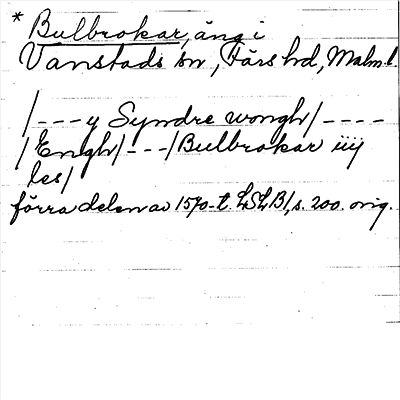 * Bulbrokar, äng i
Vanstads sn, Färs hd, Malm. l.
/---y Syndre wongh/----
/Engh/---/Bulbrokar iiij
les/
förra delen av 1570-t. LSLB/, s. 200. orig.